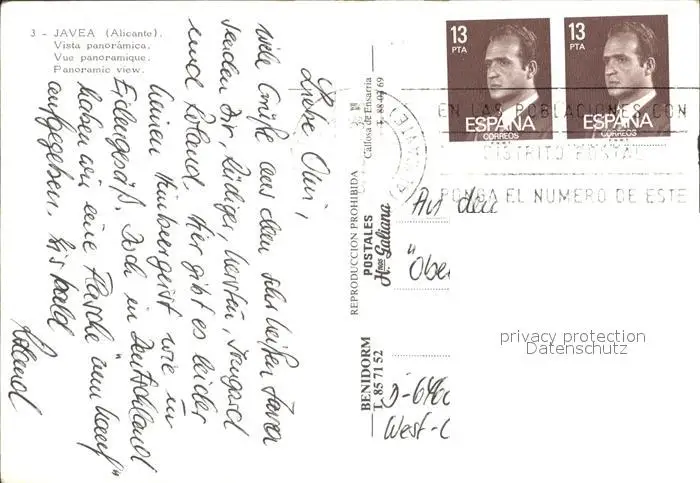 3 - JAVEA (Alicante).
Vista panorámica.
Vue panoramique.
Panoramic view.
Liebe Omi,
viele Grüße aus dem sehr heißen Javea
senden Dir, Rüdiger, Kersten, Irmgard
und Roland. Hier gibt es leider
keinen wie in
Doch in Deutschland
haben wir eine Flasche
aufgegeben. Bis bald
Roland
REPRODUCCION PROHIBIDA
POSTALES
Hnos Galiana
Callosa de Ensarria
T. 88 04 69
BENIDORM
T. 85 71 52
13
PTA
ESPAÑA
CORREOS
13
PTA
ESPAÑA
CORREOS
EN LAS POBLACIONES CON
DISTRITO POSTAL
PONGA EL NUMERO DE ESTE
An den
"Obe
D-6460
West-
privacy protection
Datenschutz